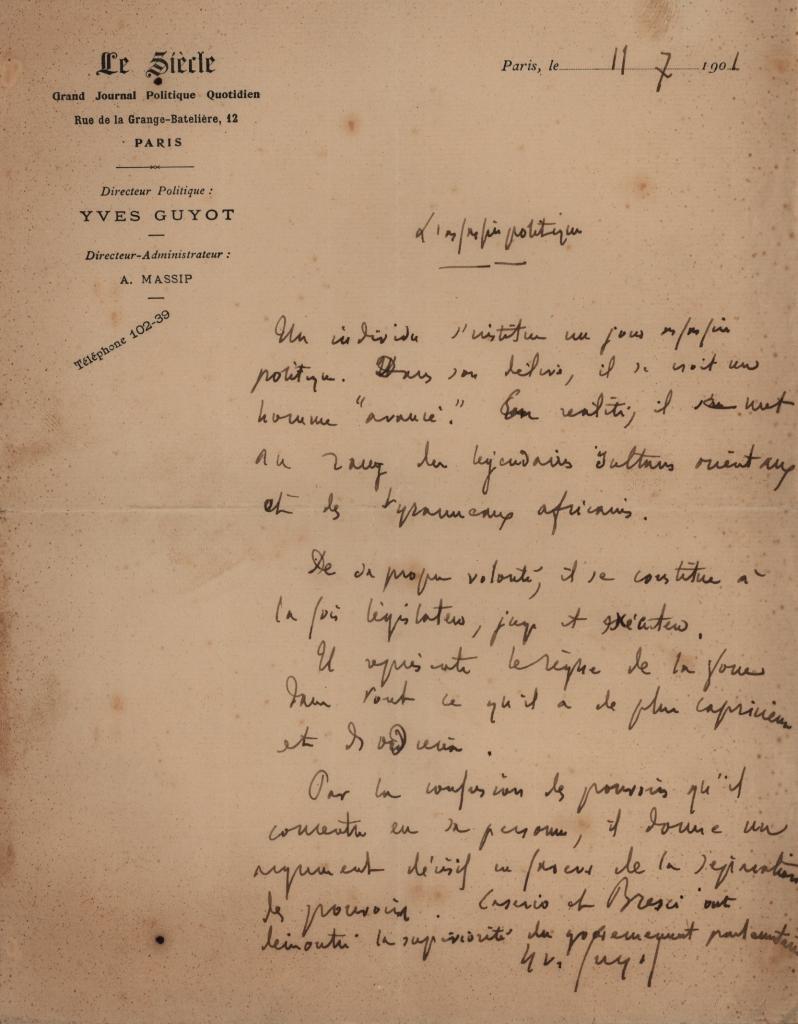 Le Siècle
Grand Journal Politique Quotidien
Rue de la Grange-Batelière, 12
PARIS
Directeur Politique :
YVES GUYOT
Directeur-Administrateur :
A. MASSIP
Téléphone 102-39
Paris, le 11 7 1901
L'assassin politique
Un individu s'institue un jour assassin
politique. Dans son délire, il se croit un
homme "avancé." En réalité, il se met
au rang des légendaires sultans orientaux
et des tyranneaux africains.
De sa propre volonté, il se constitue à
la fois législateur, juge et exécuteur.
Il représente le règne de la force
dans tout ce qu'il a de plus capricieux
et
Par la confusion des pouvoirs qu'il
concentre en sa personne, il donne un
argument décisif en faveur de la séparation
des pouvoirs. Caserio et Bresci ont
démontré la supériorité du gouvernement parlementaire
Yv. Guyot